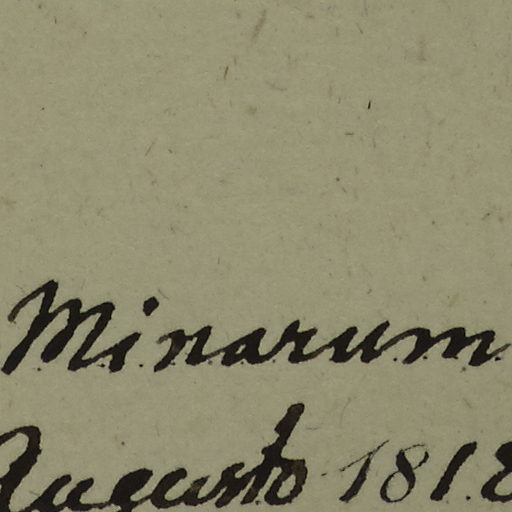 Minarum
Augusto 1818